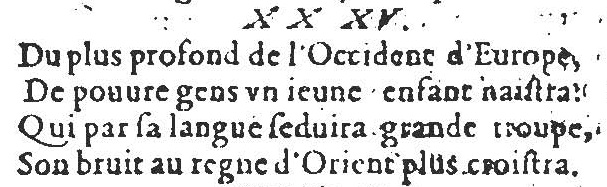 XXXV.
Du plus profond de l'Occident d'Europe,
De pouure gens vn ieune enfant naiſtra:
Qui par ſa langue ſeduira grande troupe,
Son bruit au regne d'Orient plus croiſtra.